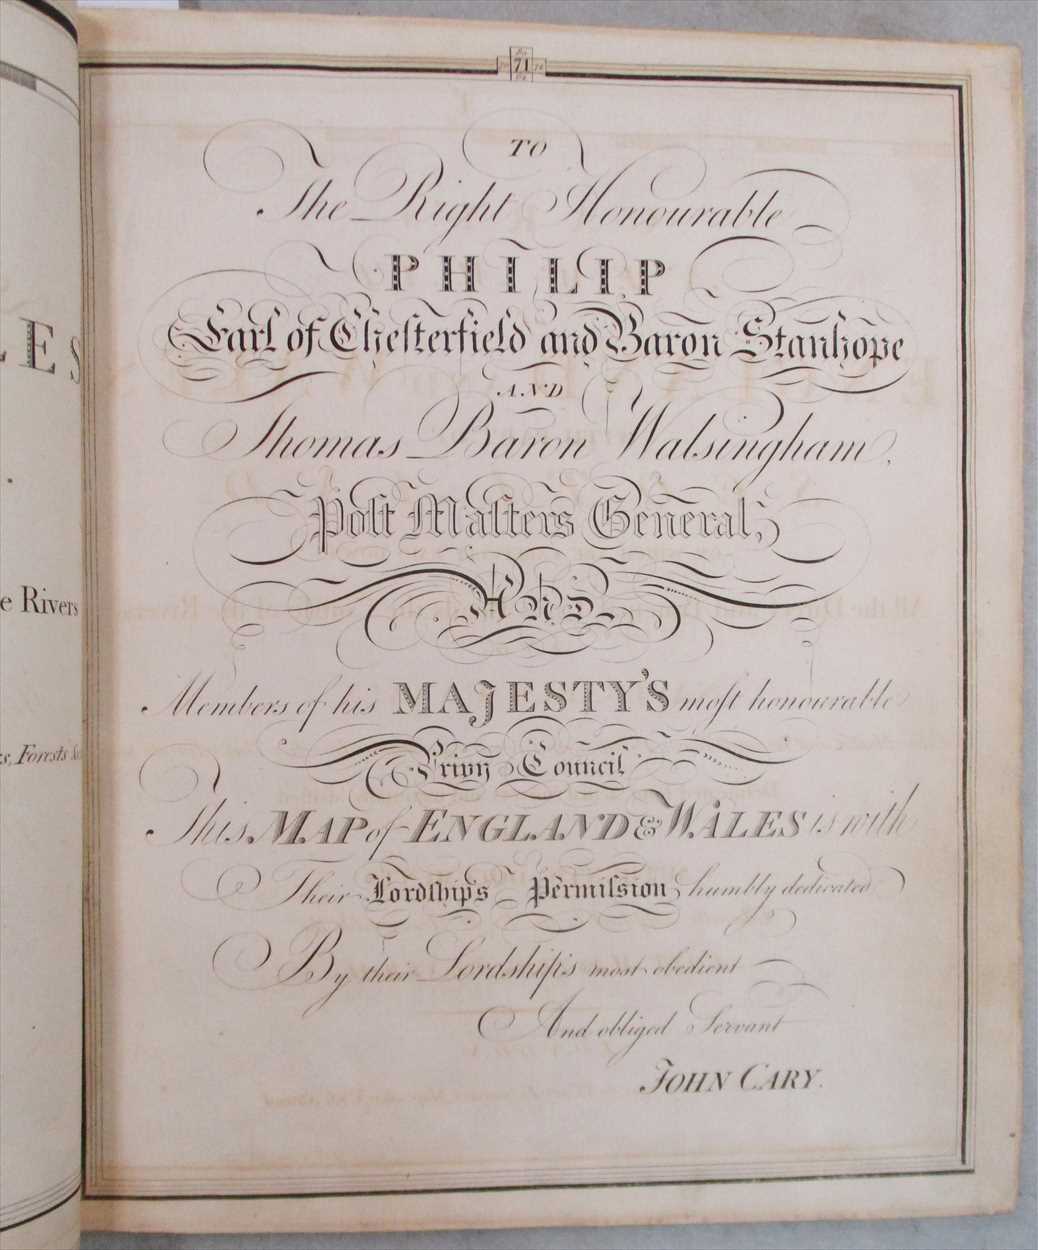 71
TO
The Right Honourable
PHILIP
Earl of Cheſterfield and Baron Stanhope
AND
Thomas Baron Walsingham,
Poſt Maſters General,
AND
Members of his MAJESTY'S moſt honourable
Privy Council
This MAP of ENGLAND & WALES is with
Their Lordſhip's Permiſsion humbly dedicated
By their Lordship's most obedient
And obliged Servant
JOHN CARY.
LES
e Rivers
s, Forests &c